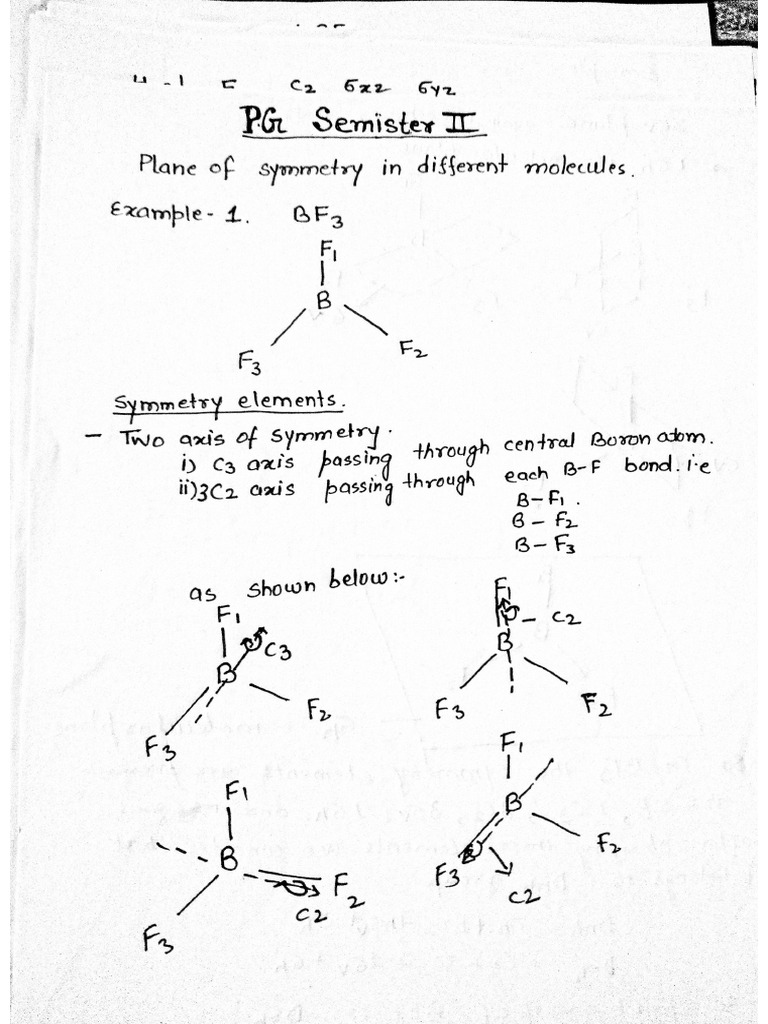 C2 σxz σyz
P.G Semister II
Plane of symmetry in different molecules.
Example - 1. BF3
F1
B
F3 F2
Symmetry elements.
- Two axis of symmetry.
i) C3 axis passing through central Boron atom.
ii) 3C2 axis passing through each B-F bond. i.e
B-F1.
B-F2
B-F3
as shown below:-
F1
C3
B
F2
F3
F1
C2
B
F3 F2
F1
B
F2
C2
F3
F1
B
F2
F3
C2